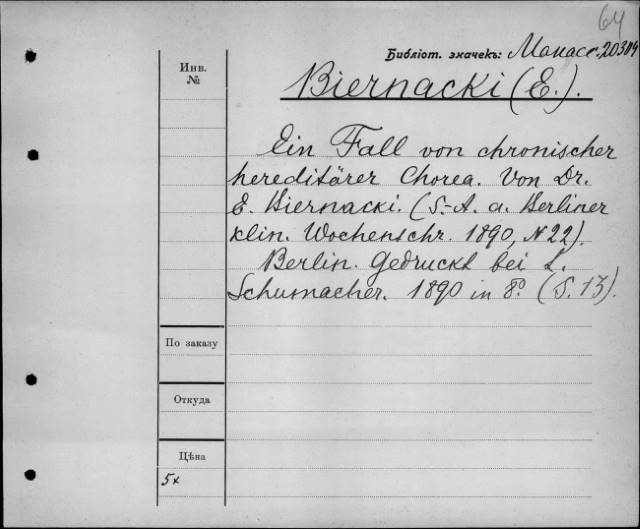 64
Библіот. значекъ: Манасс. 20304
Инв.
№
Biernacki (E.).
Ein Fall von chronischer
hereditärer Chorea. Von Dr.
E. Biernacki. (S.-A. a. Berliner
klin. Wochenschr. 1890, N 22).
Berlin. Gedruckt bei L.
Schumacher. 1890 in 8º. (S. 13).
По заказу
Откуда
Цѣна
5х